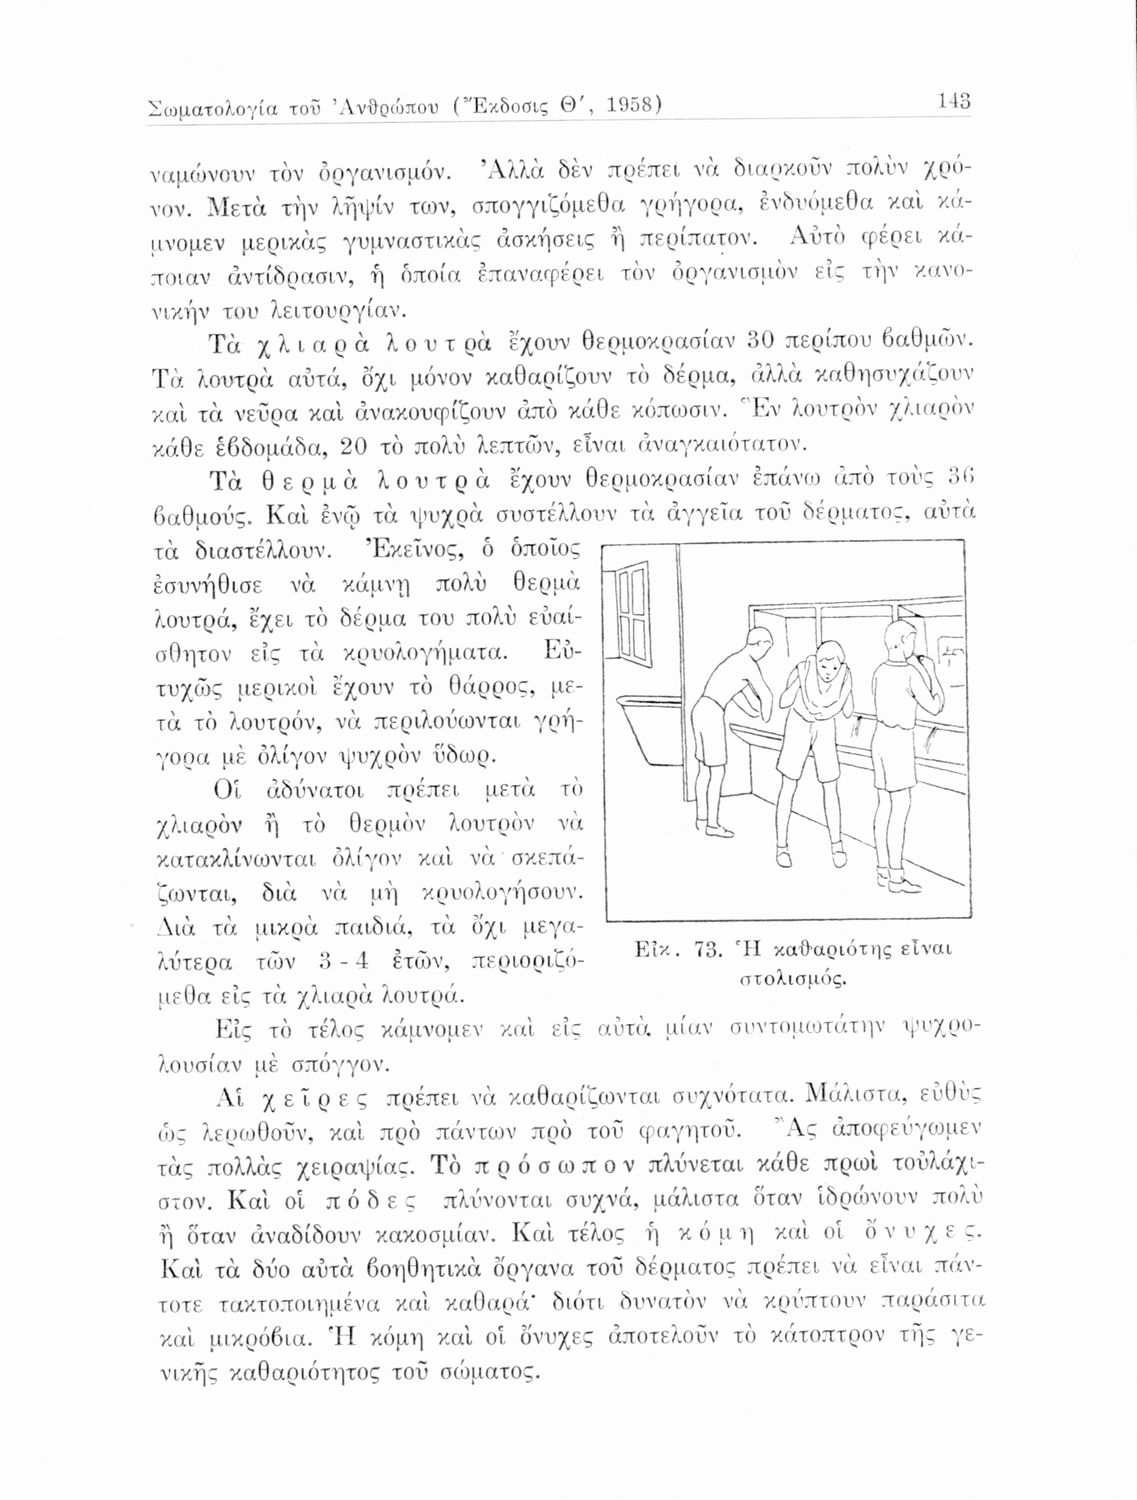 Σωματολογία τοῦ Ἀνθρώπου (Ἔκδοσις Θʹ, 1958)
143
ναμώνουν τὸν ὀργανισμόν. Ἀλλὰ δὲν πρέπει νὰ διαρκοῦν πολὺν χρό-
νον. Μετὰ τὴν λῆψίν των, σπογγιζόμεθα γρήγορα, ἐνδυόμεθα καὶ κά-
μνομεν μερικὰς γυμναστικὰς ἀσκήσεις ἢ περίπατον. Αὐτὸ φέρει κά-
ποιαν ἀντίδρασιν, ἡ ὁποία ἐπαναφέρει τὸν ὀργανισμὸν εἰς τὴν κανο-
νικήν του λειτουργίαν.
Τὰ χλιαρὰ λουτρὰ ἔχουν θερμοκρασίαν 30 περίπου βαθμῶν.
Τὰ λουτρὰ αὐτά, ὄχι μόνον καθαρίζουν τὸ δέρμα, ἀλλὰ καθησυχάζουν
καὶ τὰ νεῦρα καὶ ἀνακουφίζουν ἀπὸ κάθε κόπωσιν. Ἓν λουτρὸν χλιαρὸν
κάθε ἑβδομάδα, 20 τὸ πολὺ λεπτῶν, εἶναι ἀναγκαιότατον.
Τὰ θερμὰ λουτρὰ ἔχουν θερμοκρασίαν ἐπάνω ἀπὸ τοὺς 36
βαθμούς. Καὶ ἐνῷ τὰ ψυχρὰ συστέλλουν τὰ ἀγγεῖα τοῦ δέρματος, αὐτὰ
τὰ διαστέλλουν. Ἐκεῖνος, ὁ ὁποῖος
ἐσυνήθισε νὰ κάμνῃ πολὺ θερμὰ
λουτρά, ἔχει τὸ δέρμα του πολὺ εὐαί-
σθητον εἰς τὰ κρυολογήματα. Εὐ-
τυχῶς μερικοὶ ἔχουν τὸ θάρρος, με-
τὰ τὸ λουτρόν, νὰ περιλούωνται γρή-
γορα μὲ ὀλίγον ψυχρὸν ὕδωρ.
Οἱ ἀδύνατοι πρέπει μετὰ τὸ
χλιαρὸν ἢ τὸ θερμὸν λουτρὸν νὰ
κατακλίνωνται ὀλίγον καὶ νὰ σκεπά-
ζωνται, διὰ νὰ μὴ κρυολογήσουν.
Διὰ τὰ μικρὰ παιδιά, τὰ ὄχι μεγα-
λύτερα τῶν 3 - 4 ἐτῶν, περιοριζό-
μεθα εἰς τὰ χλιαρὰ λουτρά.
Εἰκ. 73. Ἡ καθαριότης εἶναι
στολισμός.
Εἰς τὸ τέλος κάμνομεν καὶ εἰς αὐτὰ μίαν συντομωτάτην ψυχρο-
λουσίαν μὲ σπόγγον.
Αἱ χεῖρες πρέπει νὰ καθαρίζωνται συχνότατα. Μάλιστα, εὐθὺς
ὡς λερωθοῦν, καὶ πρὸ πάντων πρὸ τοῦ φαγητοῦ. Ἂς ἀποφεύγωμεν
τὰς πολλὰς χειραψίας. Τὸ πρόσωπον πλύνεται κάθε πρωὶ τοὐλάχι-
στον. Καὶ οἱ πόδες πλύνονται συχνά, μάλιστα ὅταν ἱδρώνουν πολὺ
ἢ ὅταν ἀναδίδουν κακοσμίαν. Καὶ τέλος ἡ κόμη καὶ οἱ ὄνυχες.
Καὶ τὰ δύο αὐτὰ βοηθητικὰ ὄργανα τοῦ δέρματος πρέπει νὰ εἶναι πάν-
τοτε τακτοποιημένα καὶ καθαρά· διότι δυνατὸν νὰ κρύπτουν παράσιτα
καὶ μικρόβια. Ἡ κόμη καὶ οἱ ὄνυχες ἀποτελοῦν τὸ κάτοπτρον τῆς γε-
νικῆς καθαριότητος τοῦ σώματος.